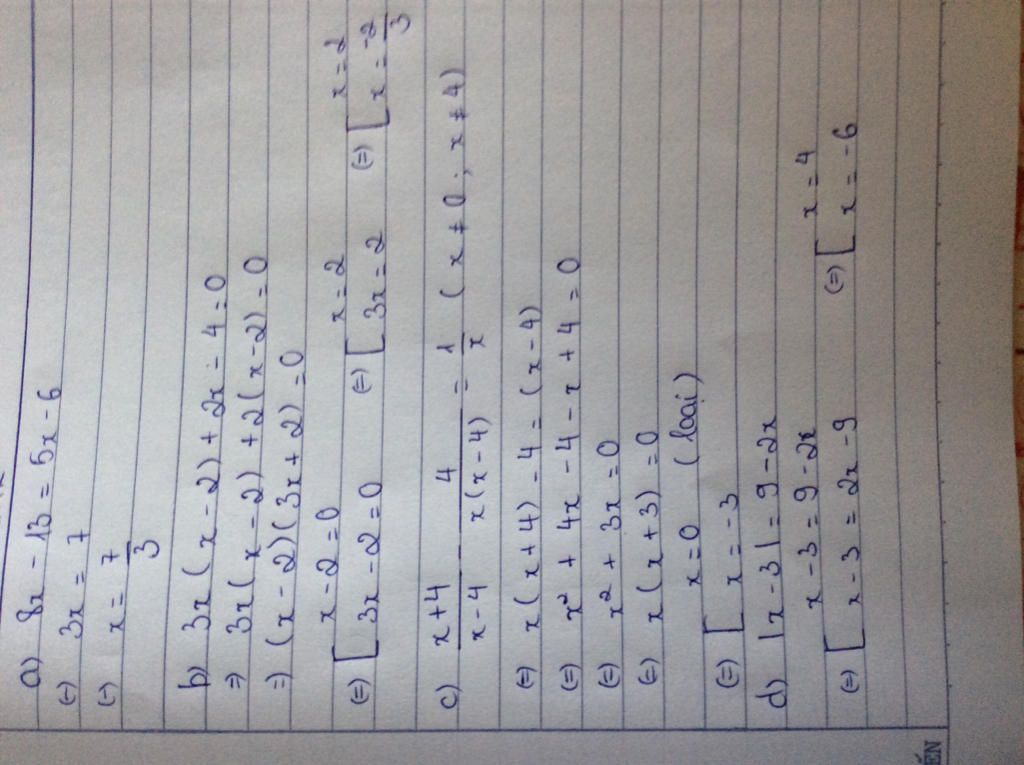 a) 8x - 13 = 5x - 6
(=) 3x = 7
(=) x = 7/3
b) 3x (x - 2) + 2x - 4 = 0
=) 3x (x - 2) + 2 (x - 2) = 0
=) (x - 2) (3x + 2) = 0
(=) [ x - 2 = 0 (=) [ x = 2 (=) [ x = 2
3x - 2 = 0 3x = 2 x = -2/3
c) (x+4)/(x-4) - 4/(x(x-4)) = 1/x ( x ≠ 0 ; x ≠ 4 )
(=) x (x + 4) - 4 = (x - 4)
(=) x² + 4x - 4 - x + 4 = 0
(=) x² + 3x = 0
(=) x (x + 3) = 0
(=) [ x = 0 (loại)
x = -3
d) |x - 3| = 9 - 2x
(=) [ x - 3 = 9 - 2x (=) [ x = 4
x - 3 = 2x - 9 x = -6
ẾN